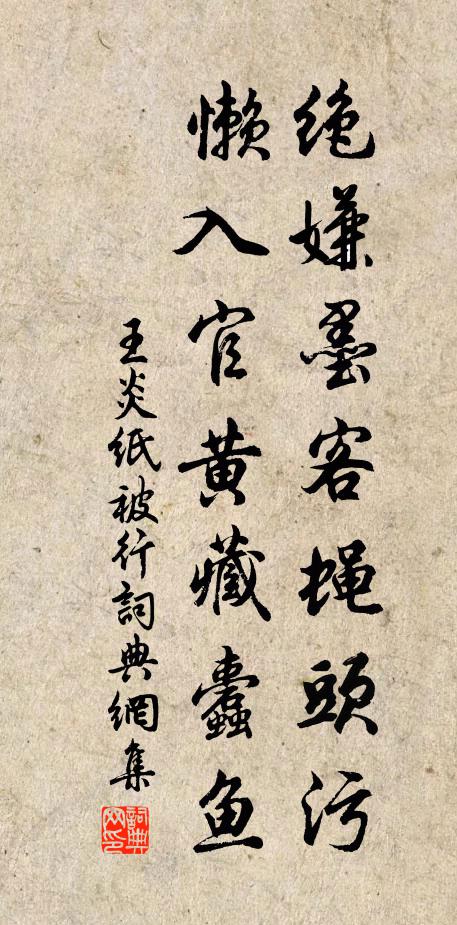 绝嫌墨客蝇头污
懒入官黄藏蠹鱼
王炎纸被行詞典網集
詞典网印